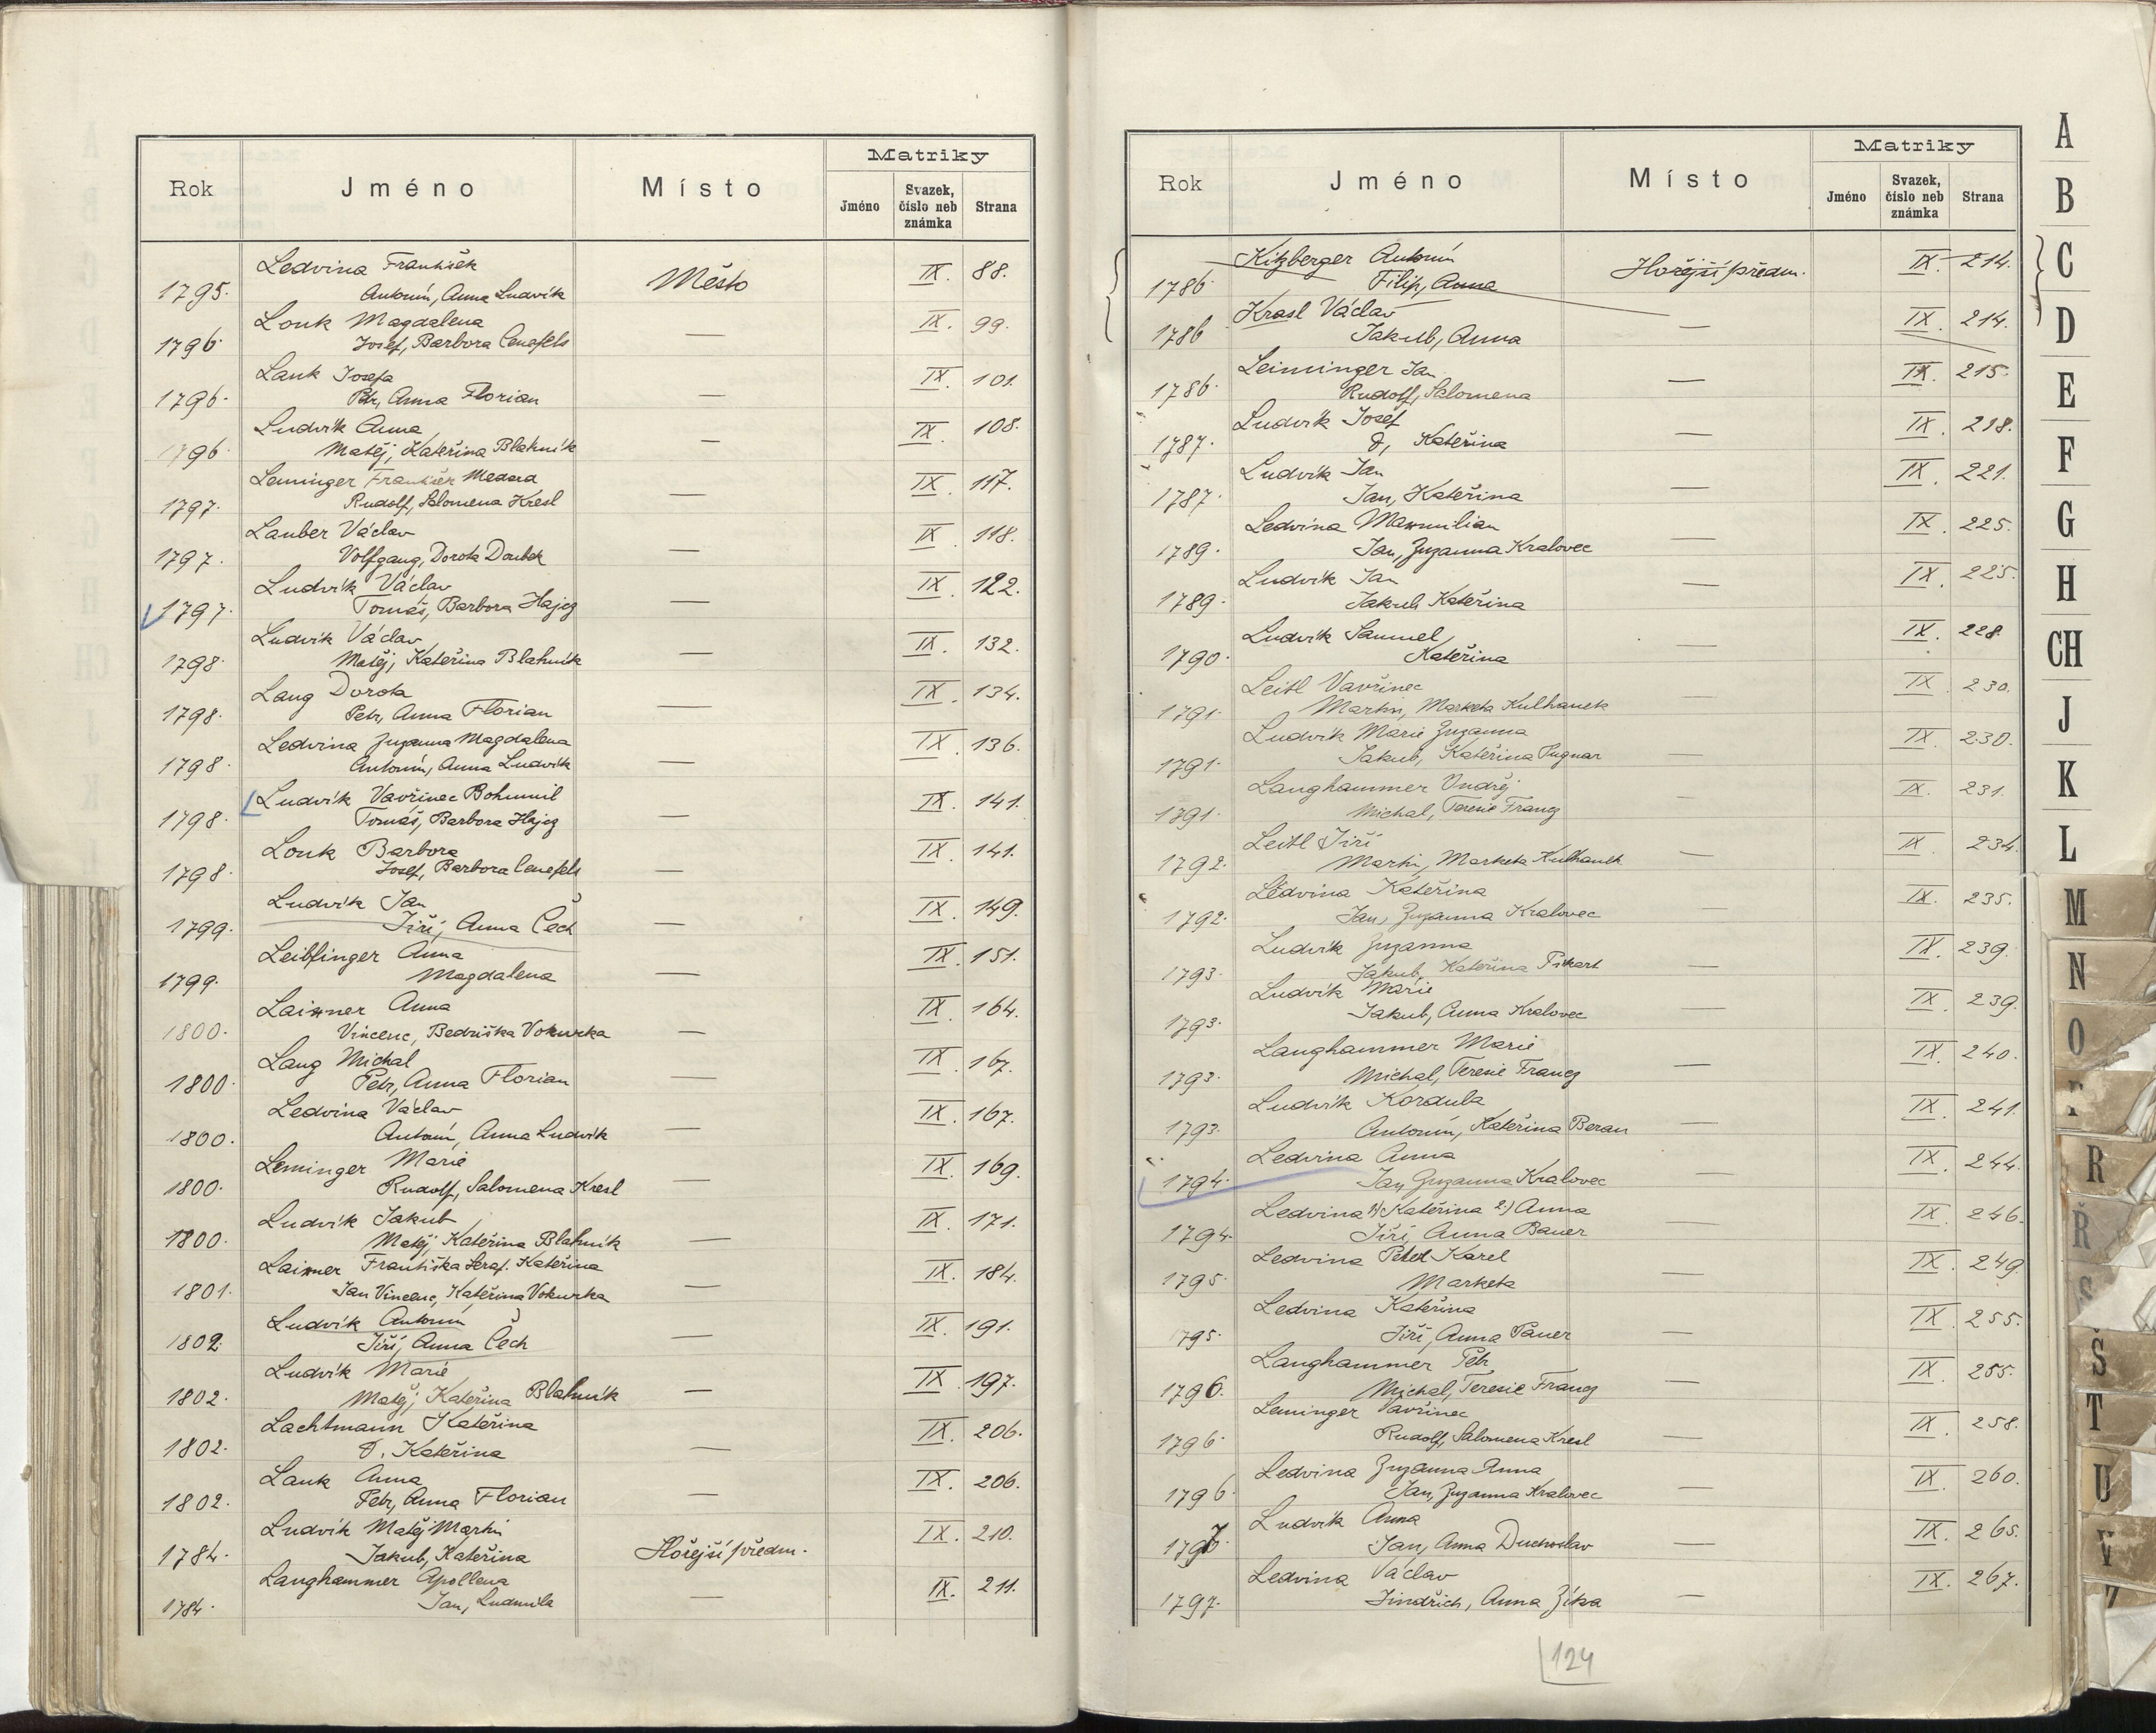 Rok Jméno Místo Matriky
Jméno Svazek, číslo neb známka Strana
Ledvina František
1795. Antonín, Anna Ludvík Město IX. 88.
Louk Magdalena
1796. Josef, Barbora Cenefels — IX. 99.
Lauk Josefa
1796. Petr, Anna Florian — IX. 101.
Ludvík Anna
1796. Matěj, Kateřina Blahnik — IX. 108.
Leminger František Medard
1797. Rudolf, Salomena Kresl — IX. 117.
Lauber Václav
1797. Volfgang, Dorota — IX. 118.
Ludvík Václav
1797. Tomáš, Barbora Hajcz — IX. 122.
Ludvík Václav
1798. Matěj, Kateřina Blahnik — IX. 132.
Lang Dorota
1798. Petr, Anna Florian — IX. 134.
Ledvina Zuzanna Magdalena
1798. Antonín, Anna Ludvík — IX. 136.
Ludvík Vavřinec Bohumil
1798. Tomáš, Barbora Hajcz — IX. 141.
Louk Barbora
1798. Josef, Barbora Cenefels — IX. 141.
Ludvík Jan
1799. Jiří, Anna Čech — IX. 149.
Leibfinger Anna
1799. Magdalena — IX. 151.
Laixner Anna
1800. Vincenc, Bedriška Vokurka — IX. 164.
Lang Michal
1800. Petr, Anna Florian — IX. 167.
Ledvina Václav
1800. Antonín, Anna Ludvík — IX. 167.
Leminger Marie
1800. Rudolf, Salomena Kresl — IX. 169.
Ludvík Jakub
1800. Matěj, Kateřina Blahnik — IX. 171.
Laixner Františka Seraf. Kateřina
1801. Jan Vincenc, Kateřina Vokurka — IX. 184.
Ludvík Antonín
1802. Jiří, Anna Čech — IX. 191.
Ludvík Marie
1802. Matěj, Kateřina Blahnik — IX. 197.
Lachtmann Kateřina
1802. O. Kateřina — IX. 206.
Lauk Anna
1802. Petr, Anna Florian — IX. 206.
Ludvík Matěj Martin
1784. Jakub, Kateřina Hořejší předm. IX. 210.
Langhammer Apollena
1784. Jan, Ludmila — IX. 211.
Rok Jméno Místo Matriky
Jméno Svazek, číslo neb známka Strana
Kitzberger Antonín
1786. Filip, Anna Hořejší předm. IX. 214.
Krasl Václav
1786 Jakub, Anna — IX. 214.
Leiminger Jan
1786. Rudolf, Salomena — IX. 215.
Ludvík Josef
1787. O, Kateřina — IX. 218.
Ludvík Jan
1787. Jan, Kateřina — IX. 221.
Ledvina Maxmilian
1789. Jan, Zuzanna Kralovec — IX. 225.
Ludvík Jan
1789. Jakub Kateřina — IX. 225.
Ludvík Samuel
1790. Kateřina — IX. 228.
Leitl Vavřinec
1791. Martin, Marketa Kulhanek — IX. 230.
Ludvík Marie Zuzanna
1791. Jakub, Kateřina Pugnar — IX. 230.
Langhammer Ondřej
1791. Michal, Teresie Francz — IX. 231.
Leitl Jiří
1792. Martin, Marketa Kulhanek — IX. 234.
Ledvina Kateřina
1792. Jan, Zuzanna Kralovec — IX. 235.
Ludvík Zuzanna
1793. Jakub, Kateřina Pikart — IX. 239.
Ludvík Marie
1793. Jakub, Anna Kralovec — IX. 239.
Langhammer Marie
1793. Michal, Teresie Francz — IX. 240.
Ludvík Kordula
1793. Antonín, Kateřina Beran — IX. 241.
Ledvina Anna
1794. Jan, Zuzanna Kralovec — IX. 244.
Ledvina 1) Kateřina 2) Anna
1794. Jiří, Anna Bauer — IX. 246.
Ledvina Karel
1795. Marketa — IX. 249.
Ledvina Kateřina
1795. Jiří, Anna Pauer — IX. 255.
Langhammer Petr
1796. Michal, Teresie Francz — IX. 255.
Leminger Vavřinec
1796. Rudolf, Salomena Kresl — IX. 258.
Ledvina Zuzanna Anna
1796. Jan, Zuzanna Kralovec — IX. 260.
Ludvík Anna
1797 Jan, Anna Duchoslav — IX. 265.
Ledvina Václav
1797. Jindřich, Anna Zika — IX. 267.
124
A
B
C
D
E
F
G
H
CH
J
K
L
M
N
O
R
Ř
S
Š
T
U
V